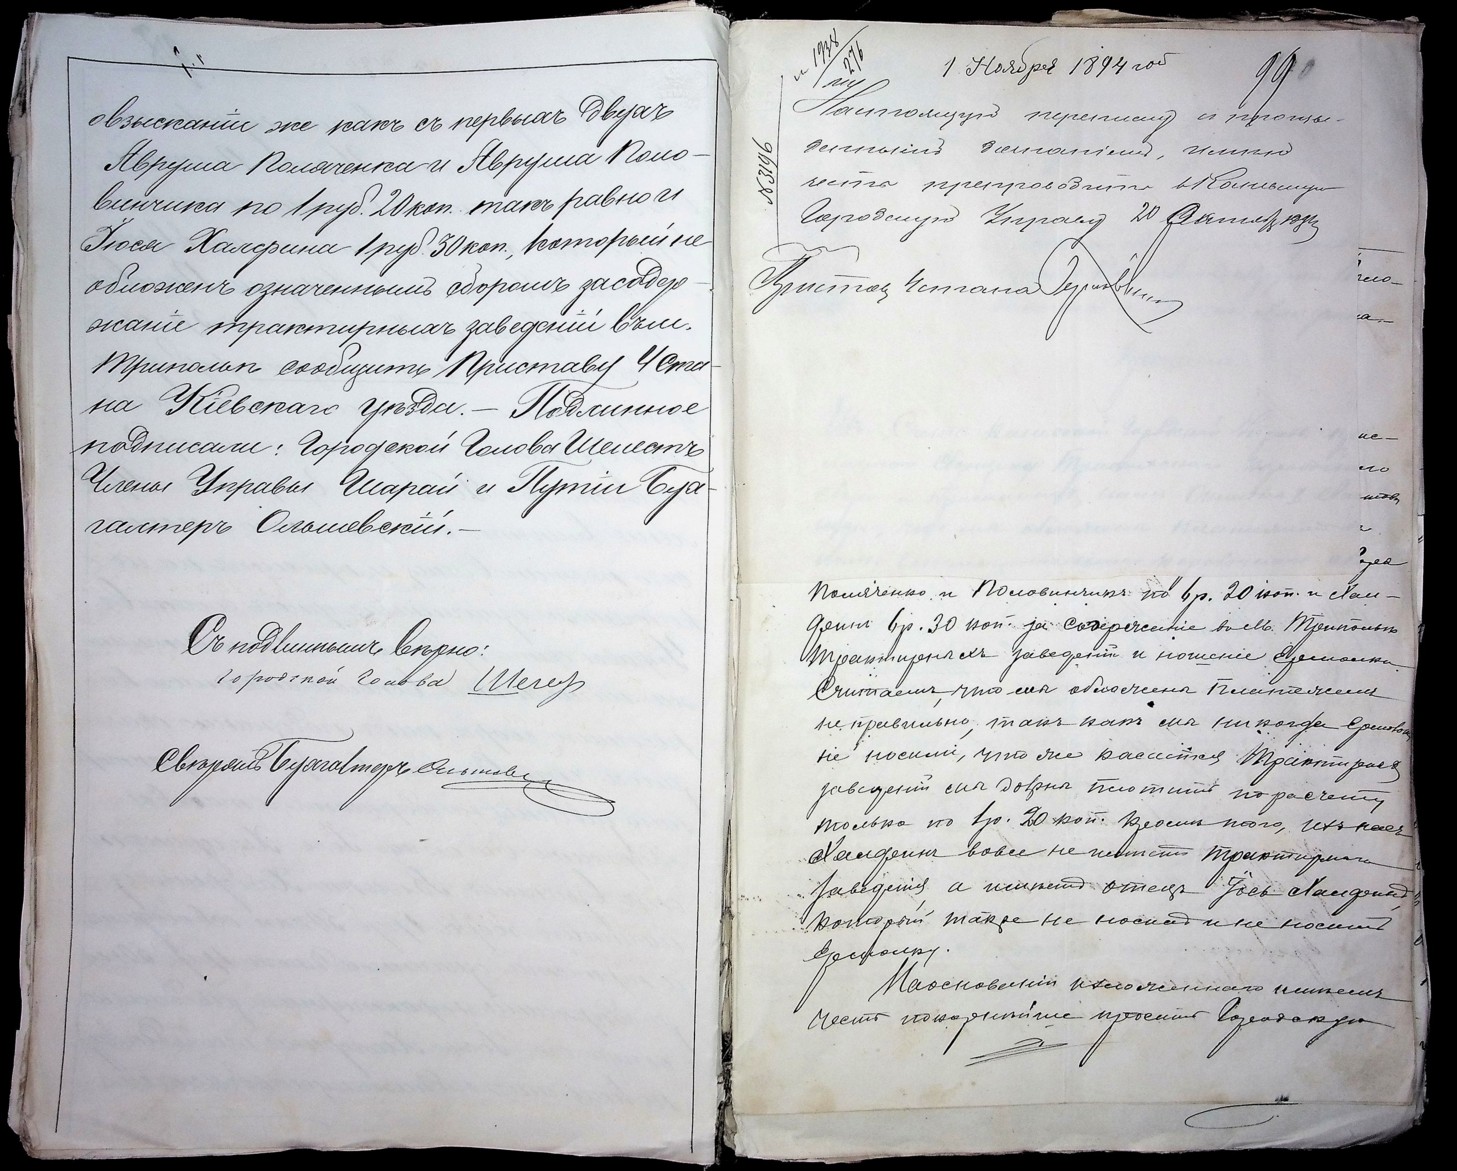 о взысканіи же какъ съ первыхъ двухъ
Аврума Поляченка и Аврума Поло-
винчика по 1 руб. 20 коп. такъ равно и
Іося Халфина 1 руб. 30 коп., который не
обложенъ означеннымъ сборомъ за содер-
жаніе трактирныхъ заведеній въ м.
Триполье сообщить Приставу 4 ста-
на Кіевскаго уѣзда. — Подлинное
подписали: Городской Голова Шелестъ
Члены Управы Шарай и Путій Бух-
галтеръ Ольшевскій. —
Съ подлиннымъ вѣрно:
Городской Голова
Свѣрялъ Бухгалтеръ
1 Ноября 1894 год
99
№ 3196
Настоящую переписку
честь препроводить
Городскую Управу 20
Приставъ 4 стана
Поляченко и Половинчикъ по 1 р. 20 коп. и Хал-
финъ 1 р. 30 коп. за содержаніе въ м. Трипольѣ
трактирныхъ заведеній и ношеніе Ермолки
Считаемъ, что мы обложены платежемъ
не правильно, такъ какъ мы никогда Ермолки
не носили, что же касается трактирныхъ
заведеній мы должны платить по расчету
только по 1 р. 20 коп. кромѣ того,
Халфинъ вовсе не имѣетъ трактирнаго
заведенія а имѣетъ отецъ Іось Халфинъ
который также не носилъ и не носитъ
Ермолку.
На основаніи изложеннаго имѣемъ
честь покорнѣйше просить Городскую